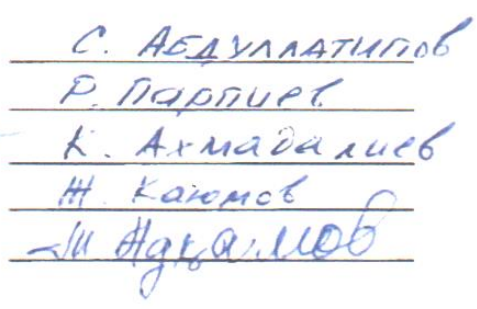 С. Абдуллатипов
Р. Парпиев
К. Ахмадалиев
Ж. Каюмов
Адҳамов